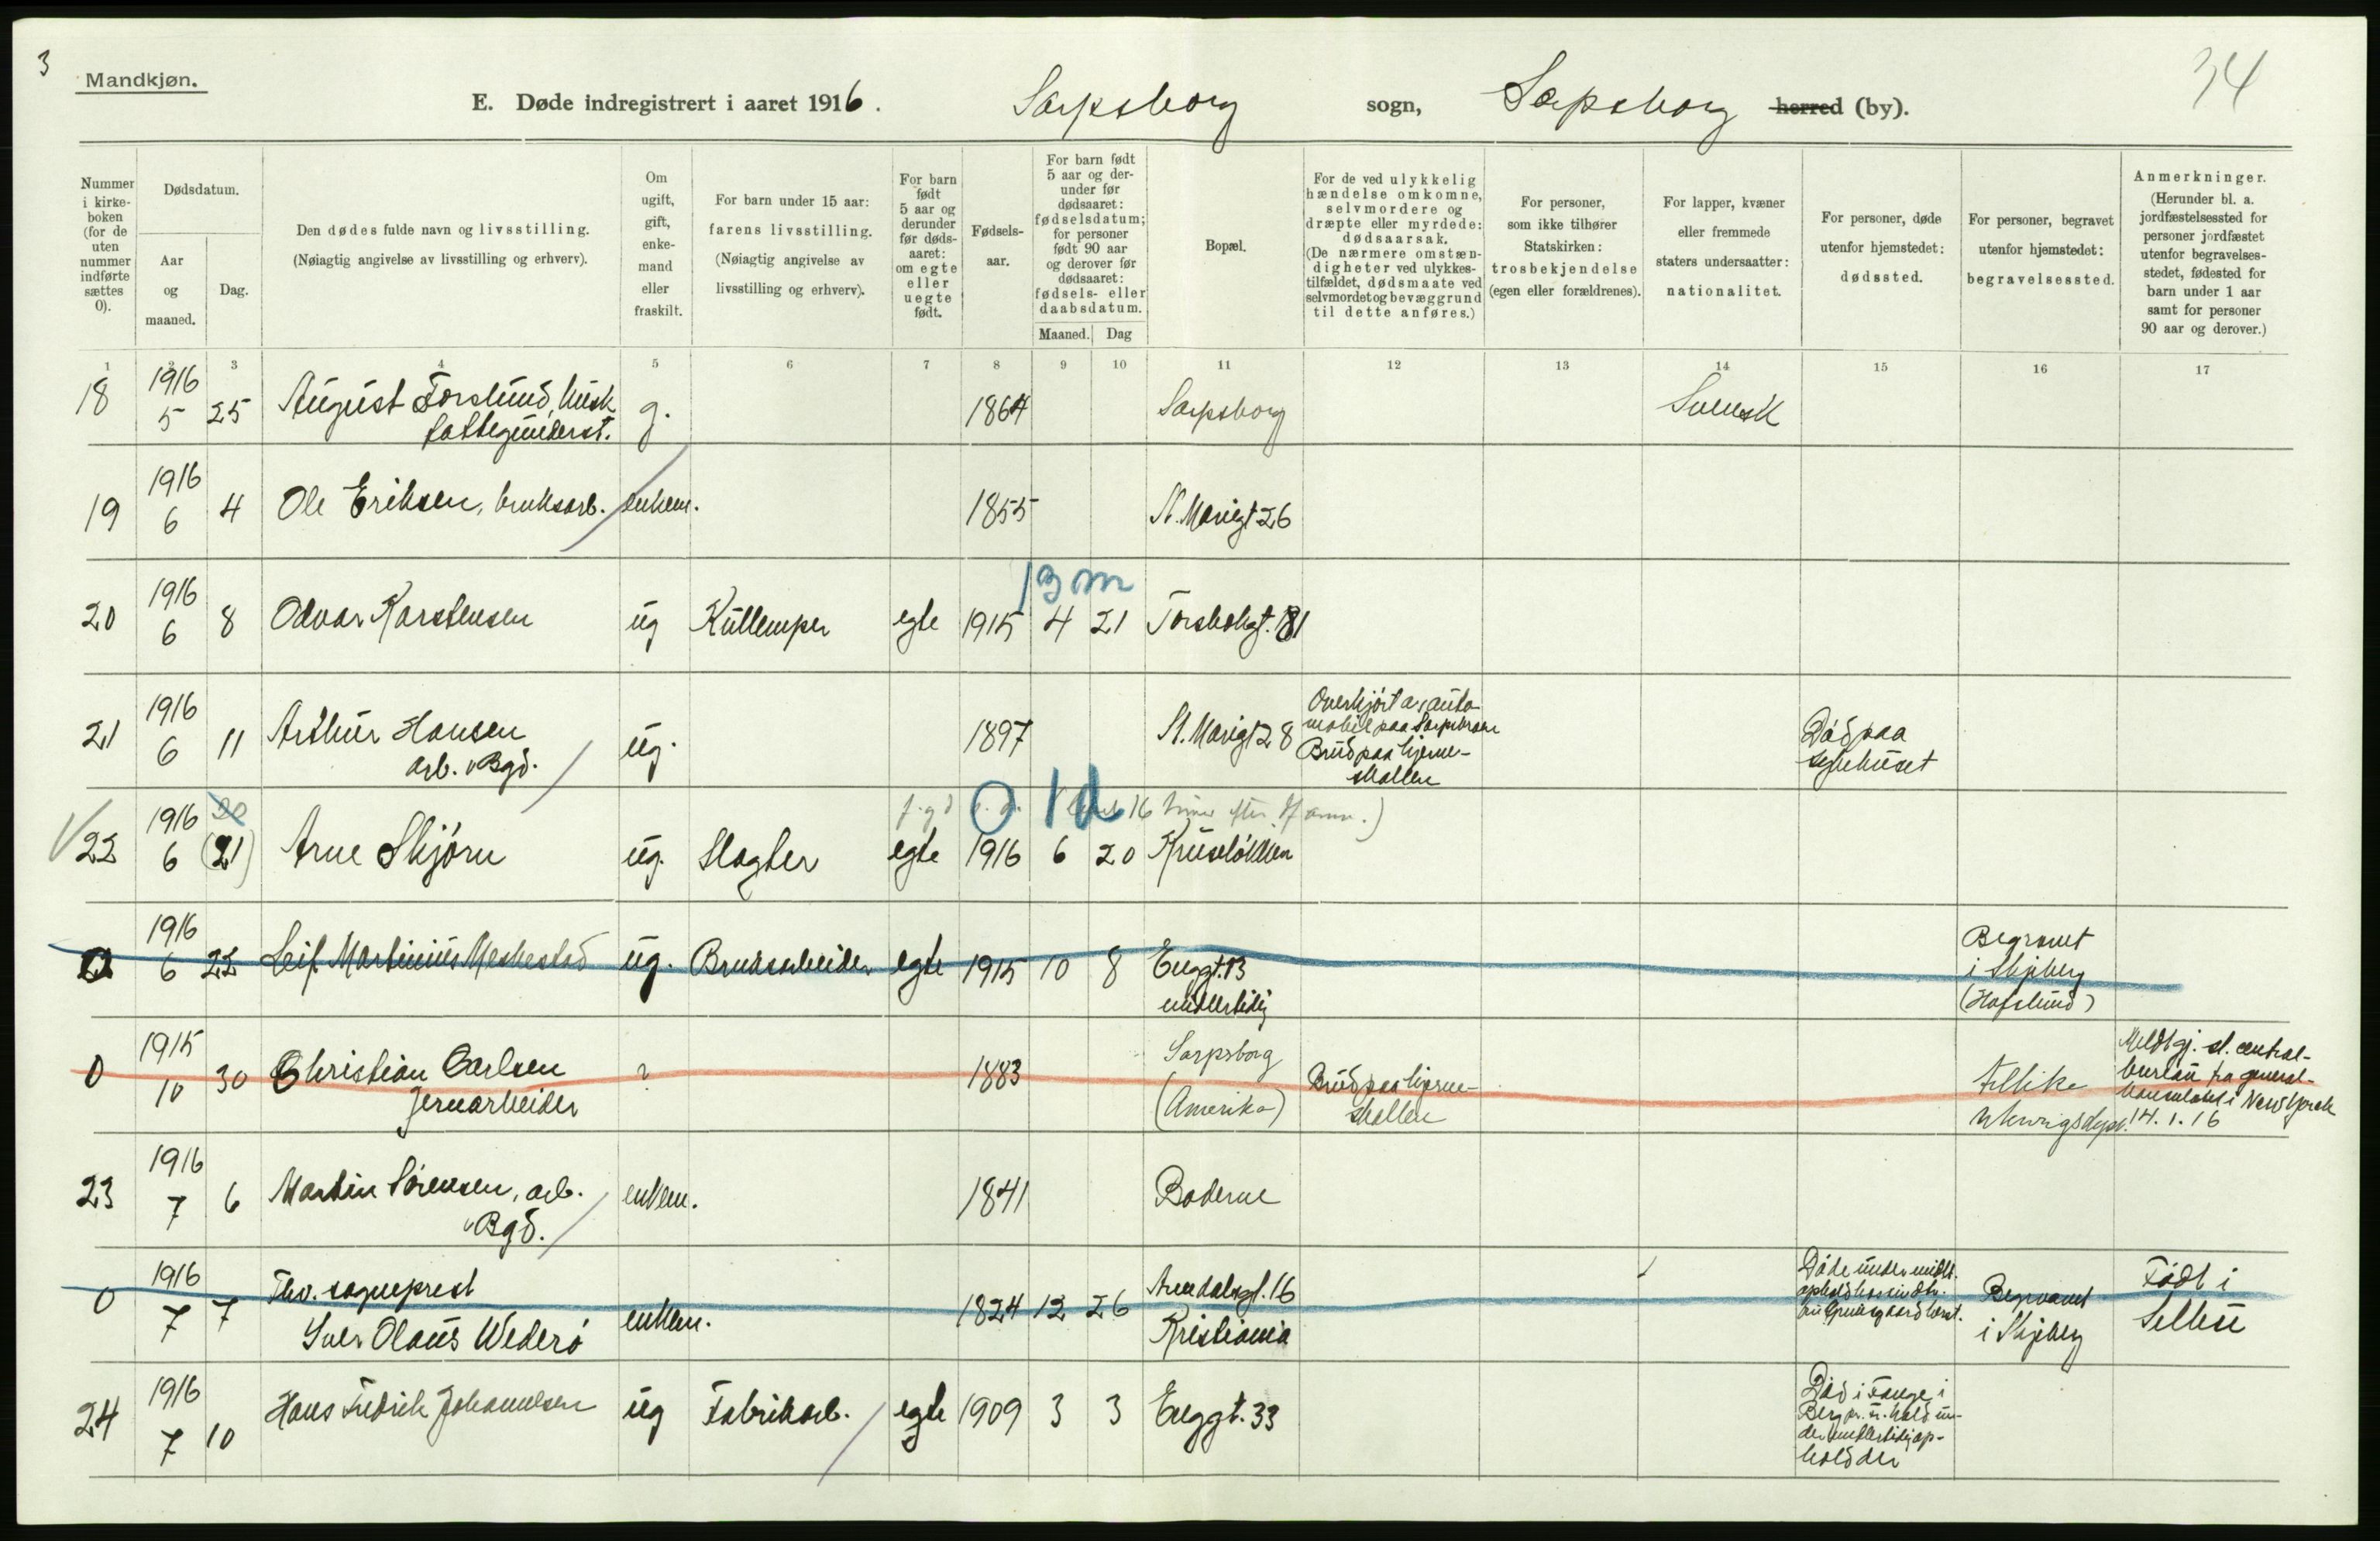 3
Mandkjøn.
34
E. Døde indregistrert i aaret 1916. Sarpsborg sogn, Sarpsborg herred (by).
Nummer i kirkeboken (for de uten nummer indførte sættes 0).
Dødsdatum.
Aar og maaned.
Dag.
Den dødes fulde navn og livsstilling.
(Nøiagtig angivelse av livsstilling og erhverv).
Om ugift, gift, enkemand eller fraskilt.
For barn under 15 aar:
farens livsstilling.
(Nøiagtig angivelse av livsstilling og erhverv).
For barn født 5 aar og derunder før dødsaaret: om egte eller uegte født.
Fødselsaar.
For barn født 5 aar og derunder før dødsaaret: fødselsdatum; for personer født 90 aar og derover før dødsaaret: fødsels- eller daabsdatum.
Maaned. Dag
Bopæl.
For de ved ulykkelig hændelse omkomne, selvmordere og dræpte eller myrdede: dødsaarsak.
(De nærmere omstændigheter ved ulykkestilfældet, dødsmaate ved selvmordet og bevæggrund til dette anføres.)
For personer, som ikke tilhører Statskirken: trosbekjendelse (egen eller forældrenes).
For lapper, kvæner eller fremmede staters undersaatter: nationalitet.
For personer, døde utenfor hjemstedet: dødssted.
For personer, begravet utenfor hjemstedet: begravelsessted.
Anmerkninger.
(Herunder bl. a. jordfæstelsessted for personer jordfæstet utenfor begravelsesstedet, fødested for barn under 1 aar samt for personer 90 aar og derover.)
1 2 3 4 5 6 7 8 9 10 11 12 13 14 15 16 17
18 1916 5 25 August Forslund, husk. fattigunderst. g. 1864 Sarpsborg Svensk
19 1916 6 4 Ole Eriksen, bruksarb. enkem. 1855 St. Mariegt 26
13 m
20 1916 6 8 Odvar Karstensen ug Kullemper egte 1915 4 21 Torsbekgt. 81
21 1916 6 11 Arthur Hansen arb. v Bgd. ug. 1897 St. Mariegt 28 Overkjørt av automobil paa Sarpsbroen Brud paa hjerneskallen Død paa sykehuset
0 1d 16 timer efter
22 1916 6 20 (21) Arne Skjørn ug. Slagter egte 1916 6 20 Kruseløkken
0 1916 6 22 Leif Martinius Meskestad ug. Bruksarbeider egte 1915 10 8 Enggt. 13 midlertidig Begravet i Skjeberg (Hafslund)
0 1915 10 30 Christian Carlsen Jernarbeider ? 1883 Sarpsborg (Amerika) Brud paa hjerneskallen Meldt gj. st. centralbureau fra generalkonsulatet i New York 14.1.16
23 1916 7 6 Martin Sørensen, arb. v Bgd. enkem. 1841 Boderne
0 1916 7 7 Fhv. sogneprest Iver Olaus Wederø enkem. 1824 12 26 Arendalsgt. 16 Kristiania Begravet i Skjeberg Født i Selbu
24 1916 7 10 Hans Fredrik Johannesen ug Fabrikarb. egte 1909 3 3 Enggt. 33 Død i Tange i Berg pr. Fr.hald under midlertidig ophold der